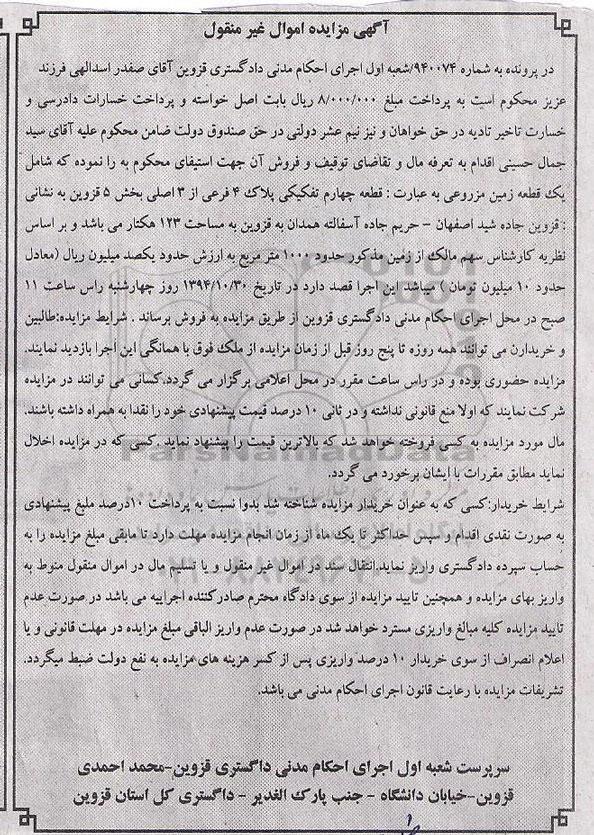 آگهی مزایده اموال غیر منقول
در پرونده به شماره ۹۴۰۰۷۴/شعبه اول اجرای احکام مدنی دادگستری قزوین آقای صفدر اسدالهی فرزند
عزیز محکوم است به پرداخت مبلغ ۸/۰۰۰/۰۰۰ ریال بابت اصل خواسته و پرداخت خسارات دادرسی و
خسارت تاخیر تادیه در حق خواهان و نیز نیم عشر دولتی در حق صندوق دولت ضامن محکوم علیه آقای سید
جمال حسینی اقدام به تعرفه مال و تقاضای توقیف و فروش آن جهت استیفای محکوم به را نموده که شامل
یک قطعه زمین مزروعی به عبارت : قطعه چهارم تفکیکی پلاک ۴ فرعی از ۳ اصلی بخش ۵ قزوین به نشانی
: قزوین جاده شید اصفهان – حریم جاده آسفالته همدان به قزوین به مساحت ۱۲۳ هکتار می باشد و بر اساس
نظریه کارشناس سهم مالک از زمین مذکور حدود ۱۰۰۰ متر مربع به ارزش حدود یکصد میلیون ریال (معادل
حدود ۱۰ میلیون تومان ) میباشد این اجرا قصد دارد در تاریخ ۱۳۹۴/۱۰/۳۰ روز چهارشنبه راس ساعت ۱۱
صبح در محل اجرای احکام مدنی دادگستری قزوین از طریق مزایده به فروش برساند . شرایط مزایده:طالبین
و خریدارن می توانند همه روزه تا پنج روز قبل از زمان مزایده از ملک فوق با همانگی این اجرا بازدید نمایند.
مزایده حضوری بوده و در راس ساعت مقرر در محل اعلامی برگزار می گردد.کسانی می توانند در مزایده
شرکت نمایند که اولا منع قانونی نداشته و در ثانی ۱۰ درصد قیمت پیشنهادی خود را نقدا به همراه داشته باشند.
مال مورد مزایده به کسی فروخته خواهد شد که بالاترین قیمت را پیشنهاد نماید .کسی که در مزایده اخلال
نماید مطابق مقررات با ایشان برخورد می گردد.
شرایط خریدار:کسی که به عنوان خریدار مزایده شناخته شد بدوا نسبت به پرداخت ۱۰درصد ملبغ پیشنهادی
به صورت نقدی اقدام و سپس حداکثر تا یک ماه از زمان انجام مزایده مهلت دارد تا مابقی مبلغ مزایده را به
حساب سپرده دادگستری واریز نماید.انتقال سند در اموال غیر منقول و یا تسلیم مال در اموال منقول منوط به
واریز بهای مزایده و همچنین تایید مزایده از سوی دادگاه محترم صادرکننده اجراییه می باشد در صورت عدم
تایید مزایده کلیه مبالغ واریزی مسترد خواهد شد در صورت عدم واریز الباقی مبلغ مزایده در مهلت قانونی و یا
اعلام انصراف از سوی خریدار ۱۰ درصد واریزی پس از کسر هزینه های مزایده به نفع دولت ضبط میگردد.
تشریفات مزایده با رعایت قانون اجرای احکام مدنی می باشد.
سرپرست شعبه اول اجرای احکام مدنی داگستری قزوین-محمد احمدی
قزوین-خیابان دانشگاه – جنب پارک الغدیر – داگستری کل استان قزوین
ParsNamadData